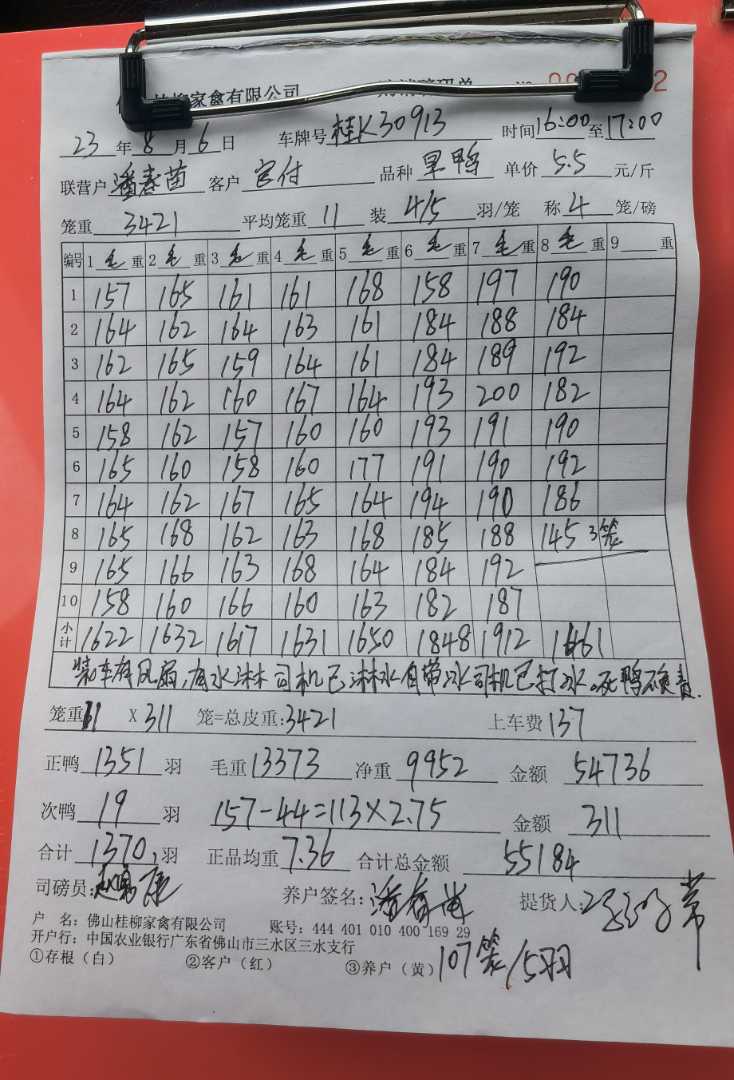 桂柳家禽有限公司 磅码单 № 2
23年8月6日 车牌号 桂K30913 时间16:00至17:00
联营户 潘春苗 客户 宫付 品种 旱鸭 单价 5.5 元/斤
笼重 3421 平均笼重 11 装 4/5 羽/笼 称 4 笼/磅
编号 1毛重 2毛重 3毛重 4毛重 5毛重 6毛重 7毛重 8毛重 9 重
1 157 165 161 161 168 158 197 190
2 164 162 164 163 161 184 188 184
3 162 165 159 164 161 184 189 192
4 164 162 160 167 164 193 200 182
5 158 162 157 160 160 193 191 190
6 165 160 158 160 177 191 190 192
7 164 162 167 165 164 194 190 186
8 165 168 162 163 168 185 188 145 3笼
9 165 166 163 168 164 184 192
10 158 160 166 160 163 182 187
小计 1622 1632 1617 1631 1650 1848 1912 1461
装车有风扇,有水淋 司机已淋水 自带冰 司机已打冰。死鸭不负责.
笼重 11 X 311 笼=总皮重:3421 上车费 137
正鸭 1351 羽 毛重 13373 净重 9952 金额 54736
次鸭 19 羽 157-44=113×2.75 金额 311
合计 1370 羽 正品均重 7.36 合计总金额 55184
司磅员: 养户签名: 潘春苗 提货人:
户 名:佛山桂柳家禽有限公司 账号:444 401 010 400 169 29
开户行:中国农业银行广东省佛山市三水区三水支行
①存根(白) ②客户(红) ③养户(黄) 107笼/5羽